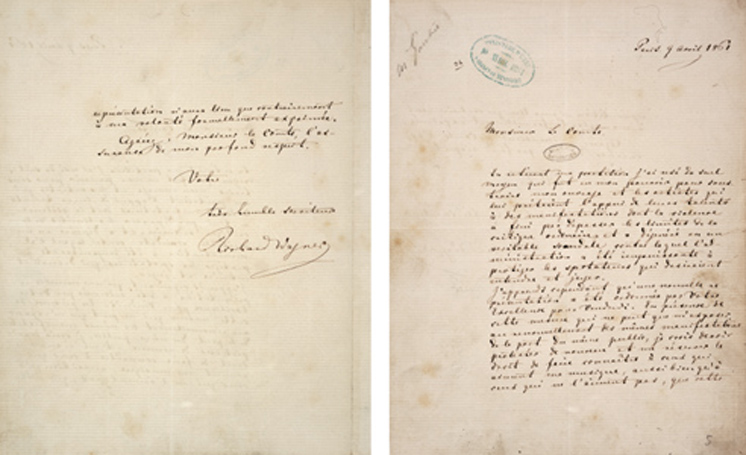 Paris 9 avril 1861
Monsieur le Comte.
En retirant ma partition j'ai usé du seul
moyen qui fut en mon pouvoir pour sous
traire mon ouvrage et les artistes qui
lui prêtaient l'appui de leurs talents
à des manifestations dont la violence
a fini par dépasser les limites de la
critique ordinaire et a dégénéré en un
véritable scandale contre lequel l'ad-
ministration a été impuissante à
protéger les spectateurs qui désiraient
entendre et juger.
J'apprends cependant qu'une nouvelle re
présentation a été ordonnée par Votre
Excellence pour Vendredi. En présence de
cette mesure qui ne peut que m'exposer
au renouvellement des mêmes manifestations
de la part du même public, je crois devoir
protester de nouveau et me réserver le
droit de faire connaître à ceux qui
aiment ma musique, aussi bien qu'à
ceux qui ne l'aiment pas, que cette
représentation n'aura lieu que contrairement
à ma volonté formellement exprimée.
Agréez, Monsieur le Comte, l'as-
surance de mon profond respect.
Votre
très humble serviteur
Richard Wagner